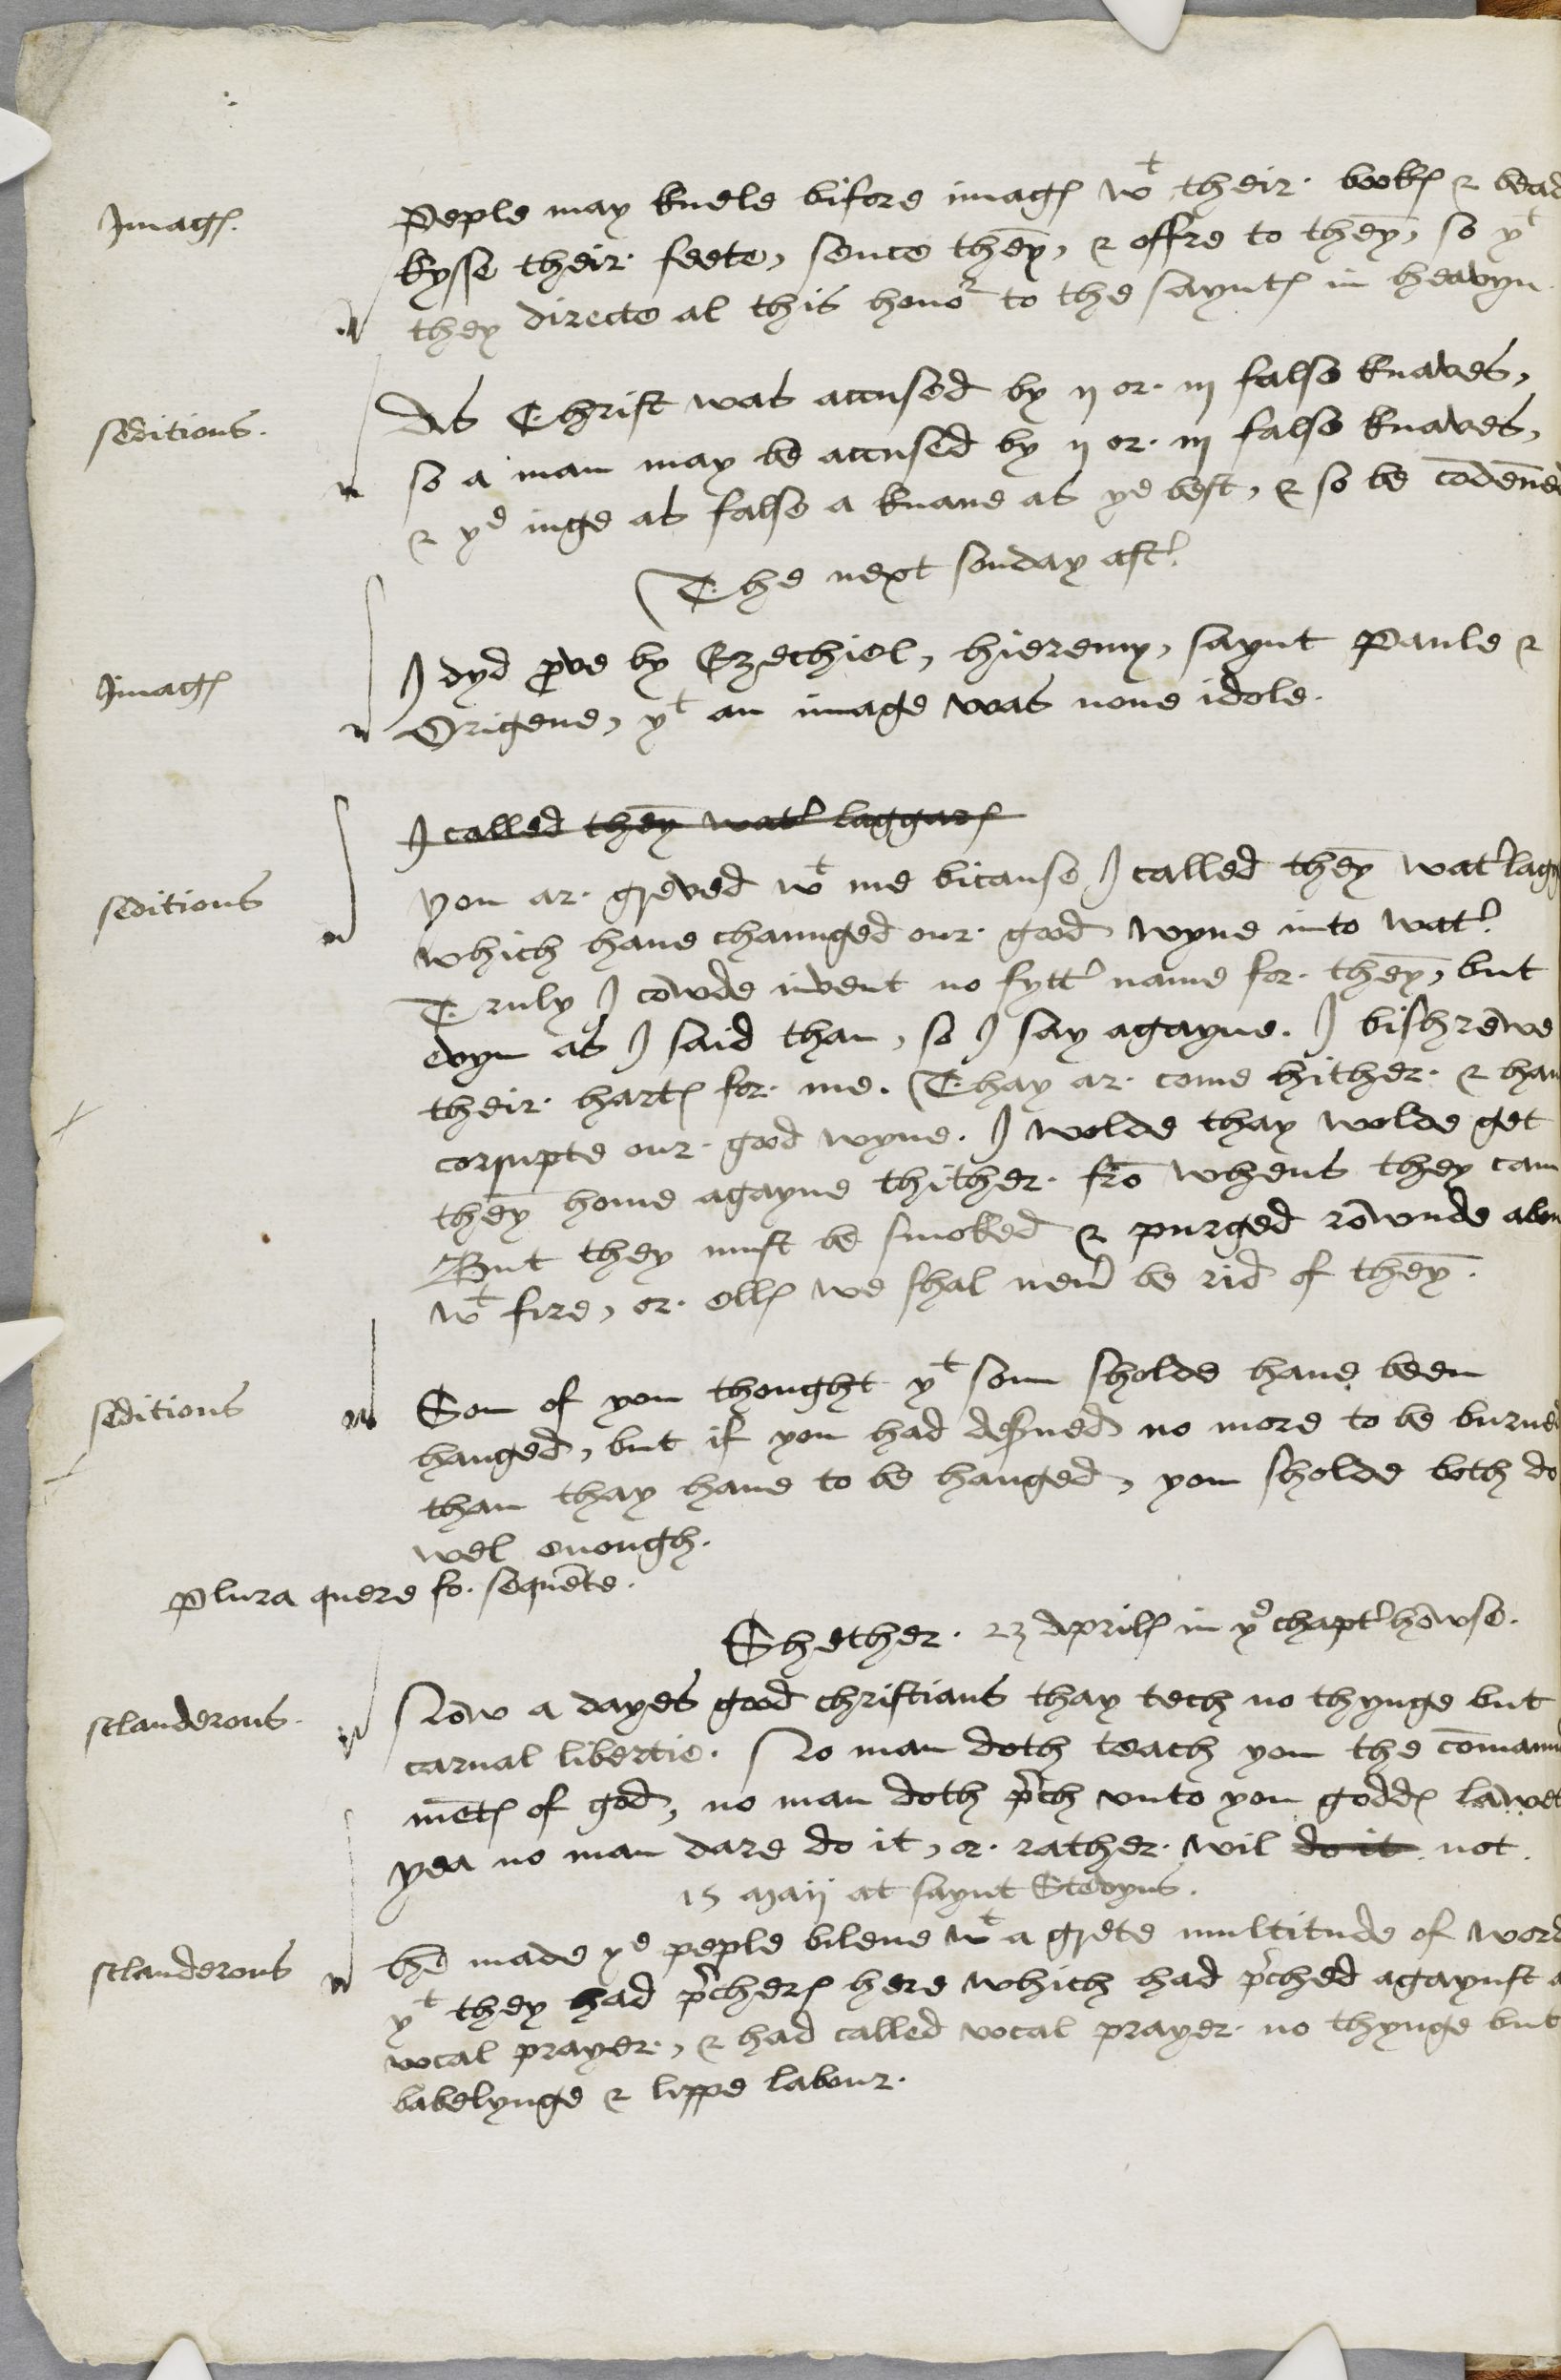 Imagꝭ.
Peple may knele bifore imagꝭ wᵗ their bookꝭ & bead
kysse their feete, sence thēy, & offre to thēy, so yᵗ
they directe al this honoʳ to the sayntꝭ in heavyn
seditious.
As Christ was accused by ij or iij false knaves,
so a man may be accused by ij or iij false knaves,
& yᵉ iuge as false a knave as yᵉ best, & so be cōdēned
The next sonday aftʳ.
Imagꝭ
I dyd ꝓve by Ezechiel, hieremy, saynt Paule &
Origene, yᵗ an image was none idole.
I called thēy watʳ laggarꝭ
seditious
you ar greved wᵗ me bicause I called thēy watʳlagg
which haue chaunged our good wyne into watʳ.
Truly I cowde invent no fyttʳ name for thēy, but
evyn as I said than, so I say agayne. I bishrewe
their hartꝭ for me. Thay ar come hither & hau
corrupte our good wyne. I wolde thay wolde get
thēy home agayne thither frō whens they cam
But they must be smoked & purged rownde abou
wᵗ fire, or ellꝭ we shal neuʳ be rid of thēy.
seditious
Som of you thought yᵗ som sholde haue been
hanged, but if you had desʳued no more to be burned
than thay haue to be hanged, you sholde both do
wel enough.
Plura quere fo. sequēte.
Shether 23 Aprilꝭ in yᵉ chaptʳhowse.
sclanderous.
Now a dayes good christians thay tech no thynge but
carnal libertie. No man doth teach you the cōmaun
mētꝭ of god, no man doth pʳch vnto you goddꝭ lawes
yea no man dare do it, or rather wil do it not.
15 Maij at saynt Stevyns.
sclanderous
he made yᵉ peple bileue wᵗ a grete multitude of word
yᵗ they had pʳcherꝭ here which had pʳched agaynst a
vocal prayer, & had called vocal prayer no thynge but
babelynge & lippe labour.